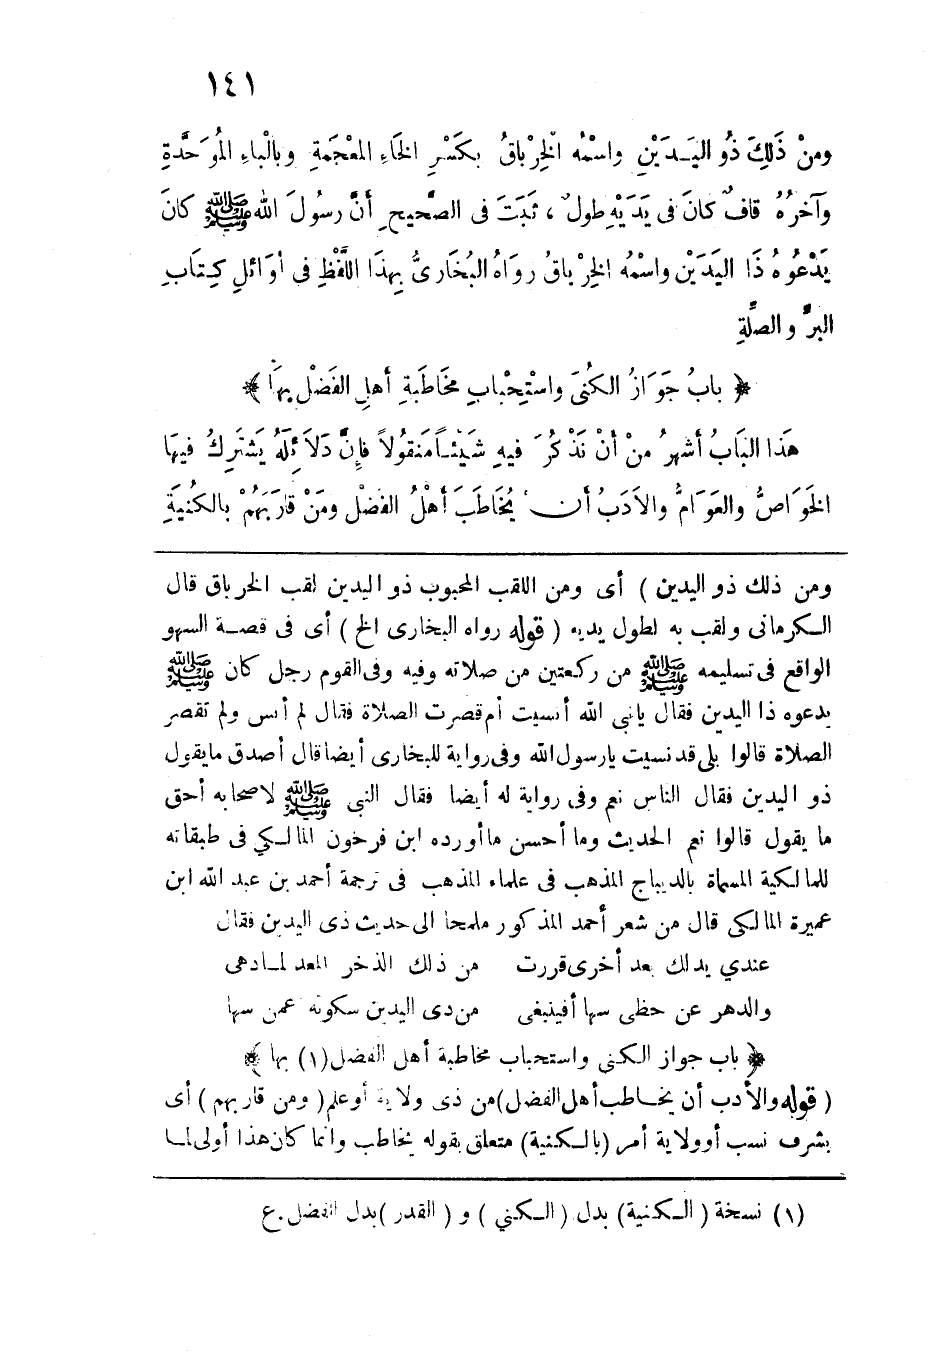 ١٤١
ومنْ ذَلِكَ ذُو اليَدَيْنِ واسْمُه الخِرْباقُ بِكَسْرِ الخَاءِ المعْجَمةِ وبالْباءِ المُوَحَّدةِ
وآخرُهُ قافٌ كانَ فى يَدَيْهِ طولٌ ، ثبَتَ فى الصَّحيحِ أنَّ رسُولَ اللهِ ﷺ كانَ
يَدْعُوهُ ذَا اليَدَيْن واسْمُه الخِرْباقُ رواهُ البُخَارىُّ بِهذَا اللَّفْظِ فى أوَائلِ كِتَابِ
البرِّ والصِّلَةِ
﴿ بابُ جَوَازُ الكُنَى واسْتِحْبابِ مخَاطَبةِ أهلِ الفَضْل بِهَا ﴾
هَذا البَابُ أشهرُ منْ أنْ نَذْكُرَ فيهِ شَيْئاً مَنقُولاً فإنَّ دَلاَئِلَهُ يَشتَرِكُ فيهَا
الخَوَاصُّ والعَوَامُّ والأدَبُ أن يُخَاطَبَ أهْلُ الفَضْلِ ومَنْ قارَبَهُمْ بالكُنيَةِ
ومن ذلك ذو اليدين ) أى ومن اللقب المحبوب ذو اليدين لقب الخرباق قال
الكرمانى ولقب به لطول يديه ( قوله رواه البخارى الخ ) أى فى قصة السهو
الواقع فى تسليمه ﷺ من ركعتين من صلاته وفيه وفى القوم رجل كان ﷺ
يدعوه ذا اليدين فقال يانبى الله أنسيت أم قصرت الصلاة فقال لم أنس ولم تقصر
الصلاة قالوا بلى قد نسيت يارسول الله وفى رواية للبخارى أيضا قال أصدق مايقول
ذو اليدين فقال الناس نعم وفى رواية له أيضا فقال النبى ﷺ لاصحابه أحق
ما يقول قالوا نعم الحديث وما أحسن ماأورده ابن فرخون المالكي فى طبقاته
للمالكية المسماة بالديباج المذهب فى علماء المذهب فى ترجمة أحمد بن عبد الله ابن
عميرة المالكى قال من شعر أحمد المذكور ملمحا الى حديث ذى اليدين فقال
عندي يد لك بعد أخرى قررت من ذلك الذخر المعد لمادهى
والدهر عن حظى سها أفينبغى من دى اليدين سكوته عمن سها
﴿ باب جواز الكنى واستحباب مخاطبة أهل الفضل(١) بها ﴾
( قوله والأدب أن يخاطب أهل الفضل )من ذى ولاية أو علم( ومن قاربهم ) أى
بشرف نسب أوولاية أمر (بالكنية) متعلق بقوله يخاطب وانما كان هذا أولى لما
(١) نسخة ( الكنية) بدل ( الكني ) و ( القدر )بدل الفضل . ع